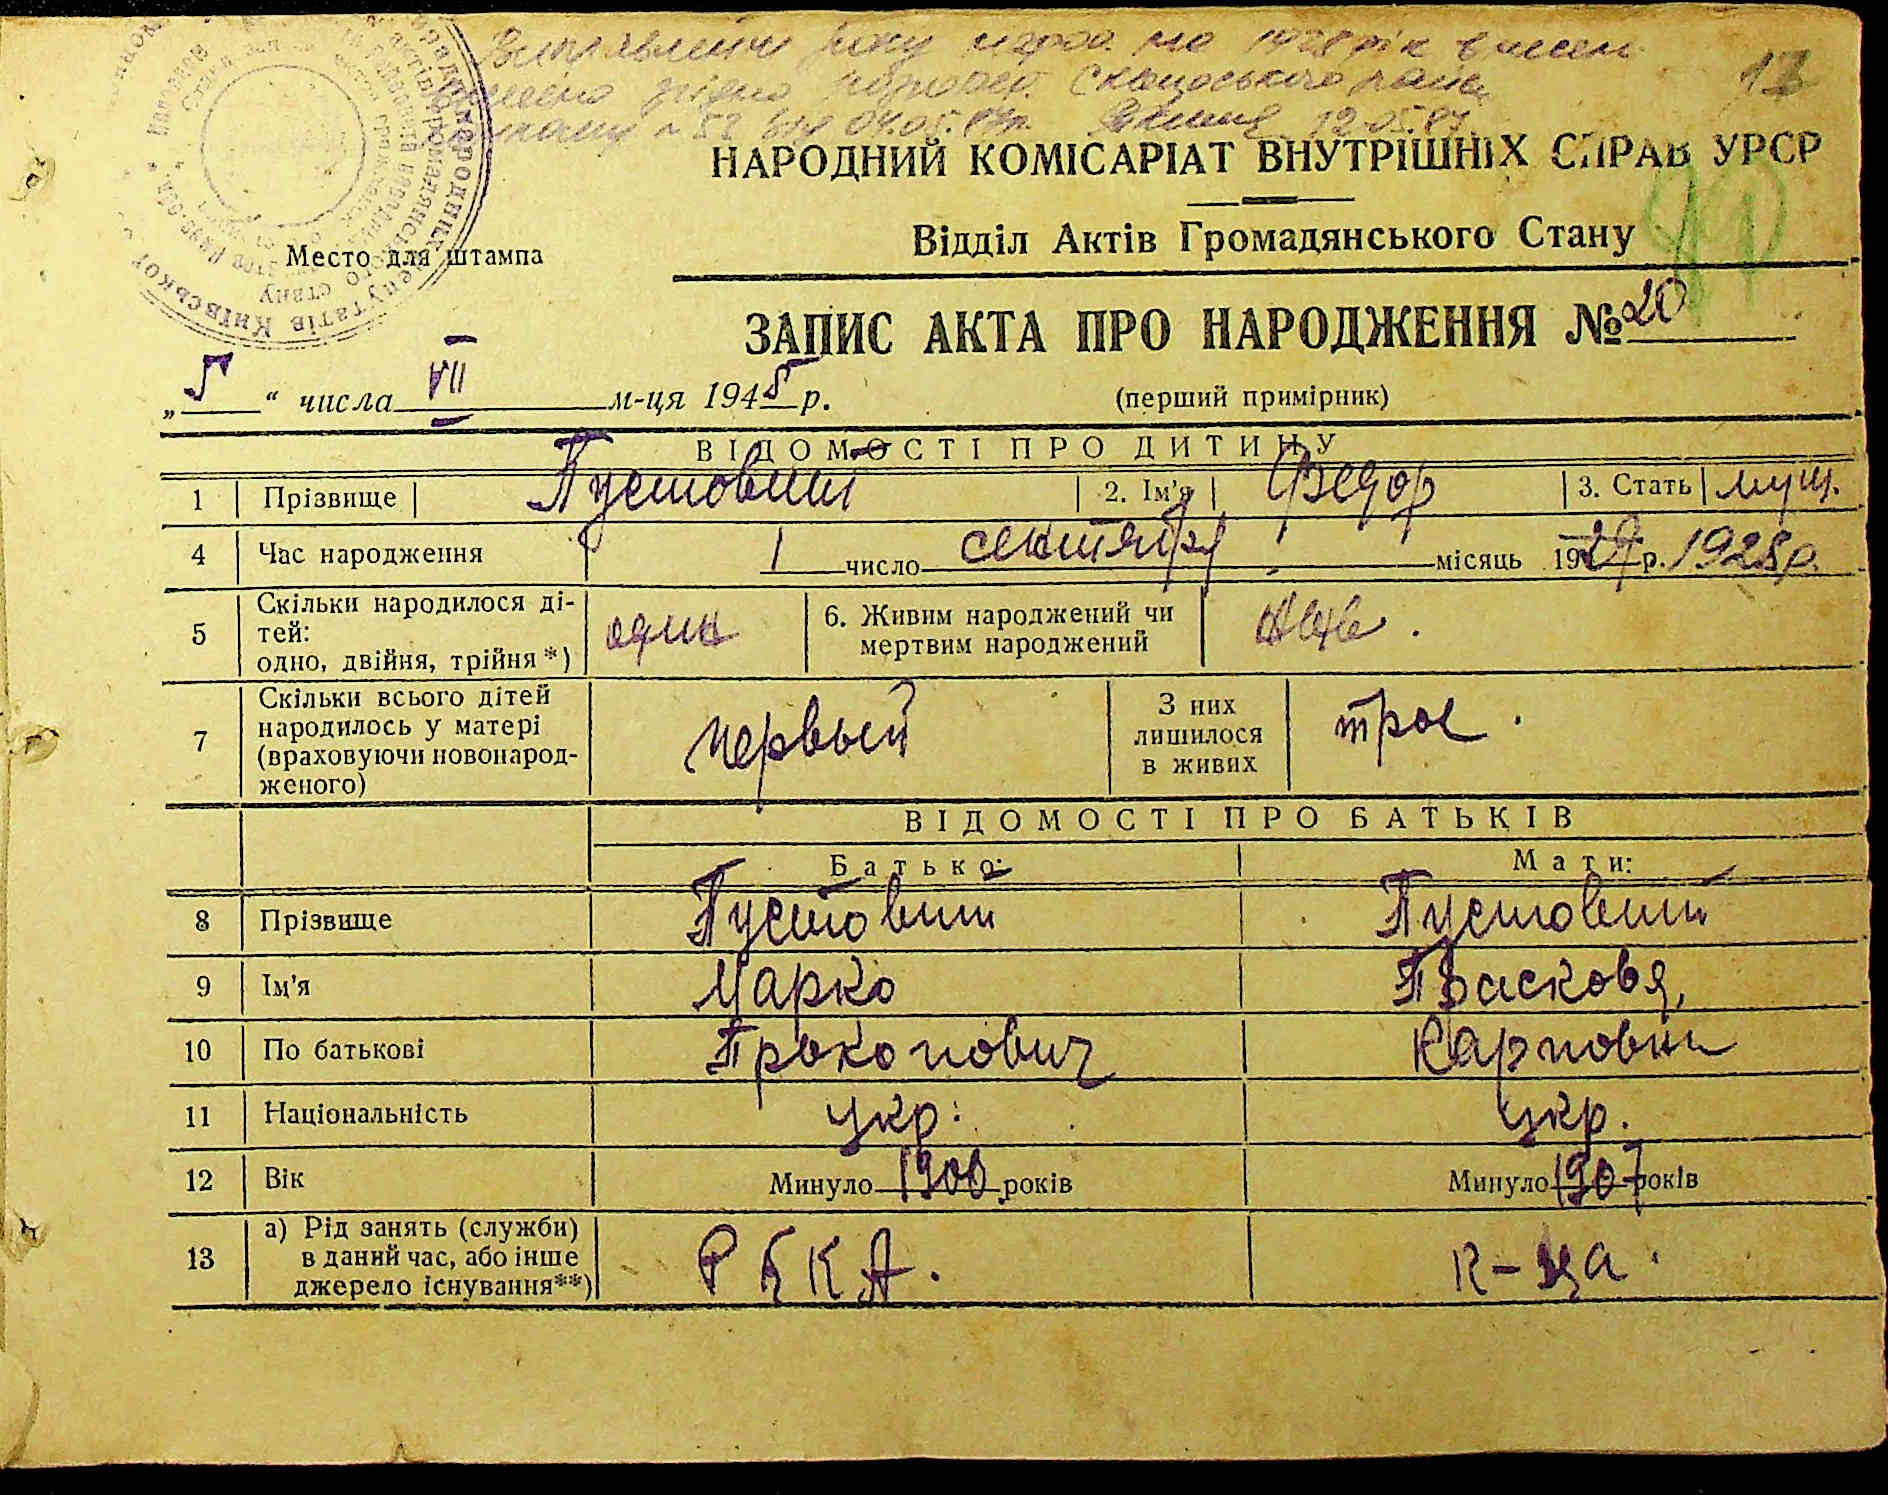 Виправлення року народ. на 1928 рік внесен
згідно Сквирського
№ 52 від 04.05.87р. 12.05.87
13
НАРОДНИЙ КОМІСАРІАТ ВНУТРІШНІХ СПРАВ УРСР
Відділ Актів Громадянського Стану
Место для штампа
ЗАПИС АКТА ПРО НАРОДЖЕННЯ № 20
„ 5 “ числа VII м-ця 1945 р. (перший примірник)
ВІДОМОСТІ ПРО ДИТИНУ
1 Прізвище Пустовит 2. Ім'я Федор 3. Стать мущ.
4 Час народження 1 число сентября місяць 1929 р. 1928р.
5 Скільки народилося ді-
тей:
одно, двійня, трійня*) один
6. Живим народжений чи
мертвим народжений
7 Скільки всього дітей
народилось у матері
(враховуючи новонарод-
женого) первый
З них
лишилося
в живих трое.
ВІДОМОСТІ ПРО БАТЬКІВ
Батько: Мати:
8 Прізвище Пустовит Пустовит
9 Ім'я Марко Прасковя,
10 По батькові Прокопович Карповна
11 Національність укр. укр.
12 Вік Минуло 1900 років Минуло 1907 років
13 а) Рід занять (служби)
в даний час, або інше
джерело існування**) РККА. к-ца.